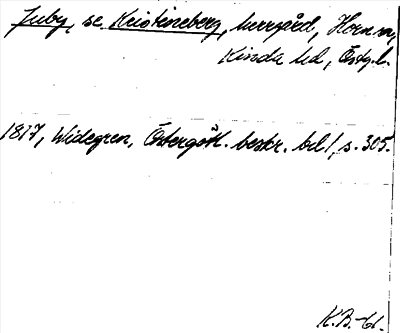 Juby, se Kristineberg, herrgård, Horn sn,
Kinda hd, Östg.l.
1817, Widegren, Östergötl. beskr. bd 1, s. 305.
K.B-61.